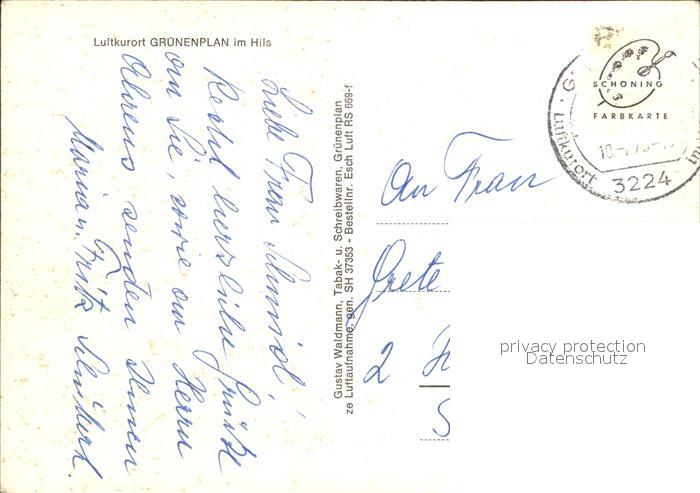 Luftkurort GRÜNENPLAN im Hils
Liebe Frau Schmidt,
Recht herzliche Grüße
an Sie, sowie an Herrn
Ahrens senden Ihnen
Maria u. Fritz
Gustav Waldmann, Tabak- u. Schreibwaren, Grünenplan
ze Luftaufnahme, gen. SH 37353 - Bestellnr. Esch Luft RS 669-f
SCHÖNING
FARBKARTE
Luftkurort
3224
An Frau
Grete
2
privacy protection
Datenschutz